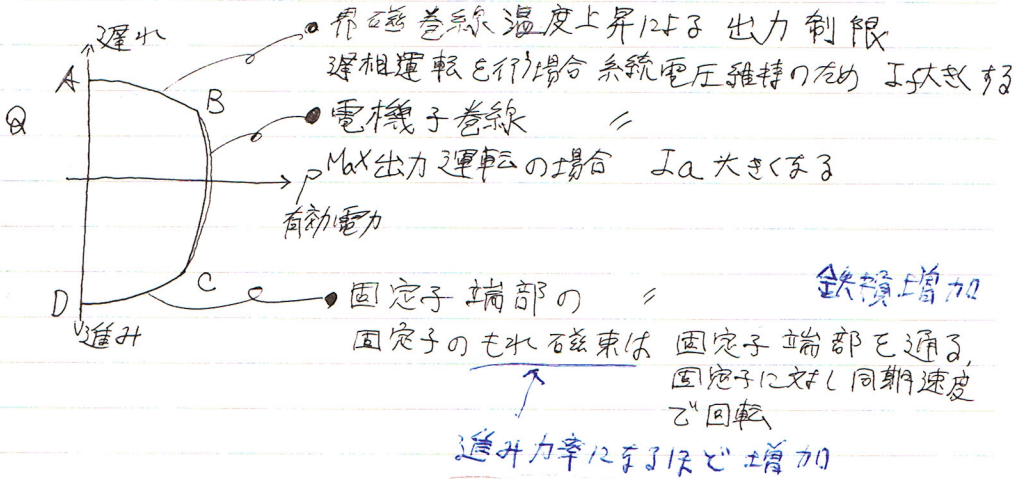 遅れ
・界磁巻線温度上昇による出力制限
遅相運転を行う場合 系統電圧維持のため If大きくする
A
B
Q
●電機子巻線 〃
Max出力運転の場合 Ia 大きくなる
P
有効電力
C
D
進み
●固定子端部の 〃
鉄損増加
固定子のもれ磁束は 固定子端部を通る,
固定子に対し同期速度
で回転
進み力率になるほど増加